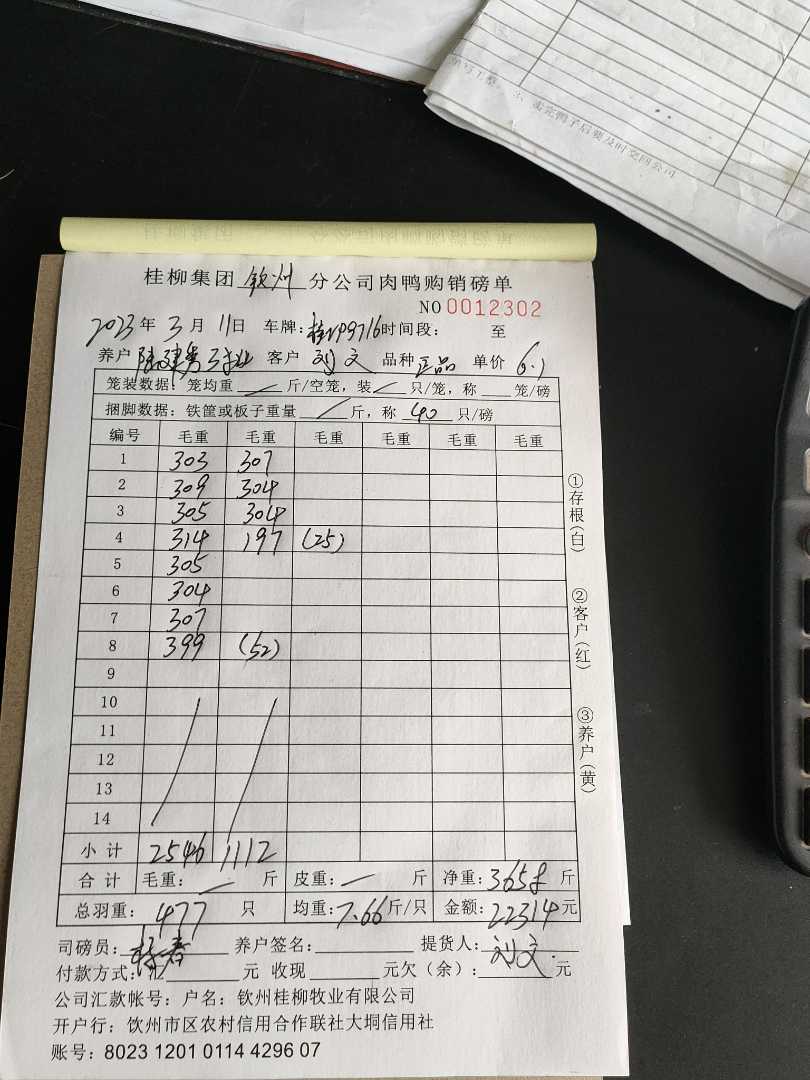 填写工整。 3、卖完鸭子后要及时交回公司
桂柳集团 钦州 分公司肉鸭购销磅单
NO 0012302
2023 年 3 月 11 日 车牌: 桂 P9716 时间段: 至
养户 陆建 客户 刘文 品种 正品 单价 6.1
笼装数据: 笼均重 / 斤/空笼, 装 / 只/笼, 称 笼/磅
捆脚数据: 铁筐或板子重量 / 斤, 称 40 只/磅
编号 毛重 毛重 毛重 毛重 毛重 毛重
1 303 307
2 309 304
3 305 304
4 314 197 (25)
5 305
6 304
7 307
8 399 (52)
9
10
11
12
13
14
小计 2546 1112
合计 毛重: / 斤 皮重: / 斤 净重: 3658 斤
总羽重: 477 只 均重: 7.66 斤/只 金额: 22314 元
司磅员: 养户签名: 提货人: 刘文
付款方式: 元 收现 元欠(余): 元
公司汇款帐号: 户名: 钦州桂柳牧业有限公司
开户行: 饮州市区农村信用合作联社大垌信用社
账号: 8023 1201 0114 4296 07
①存根(白)
②客户(红)
③养户(黄)